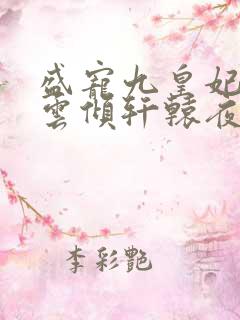 盛寵九皇妃
雲傾軒轅夜
李彩艷